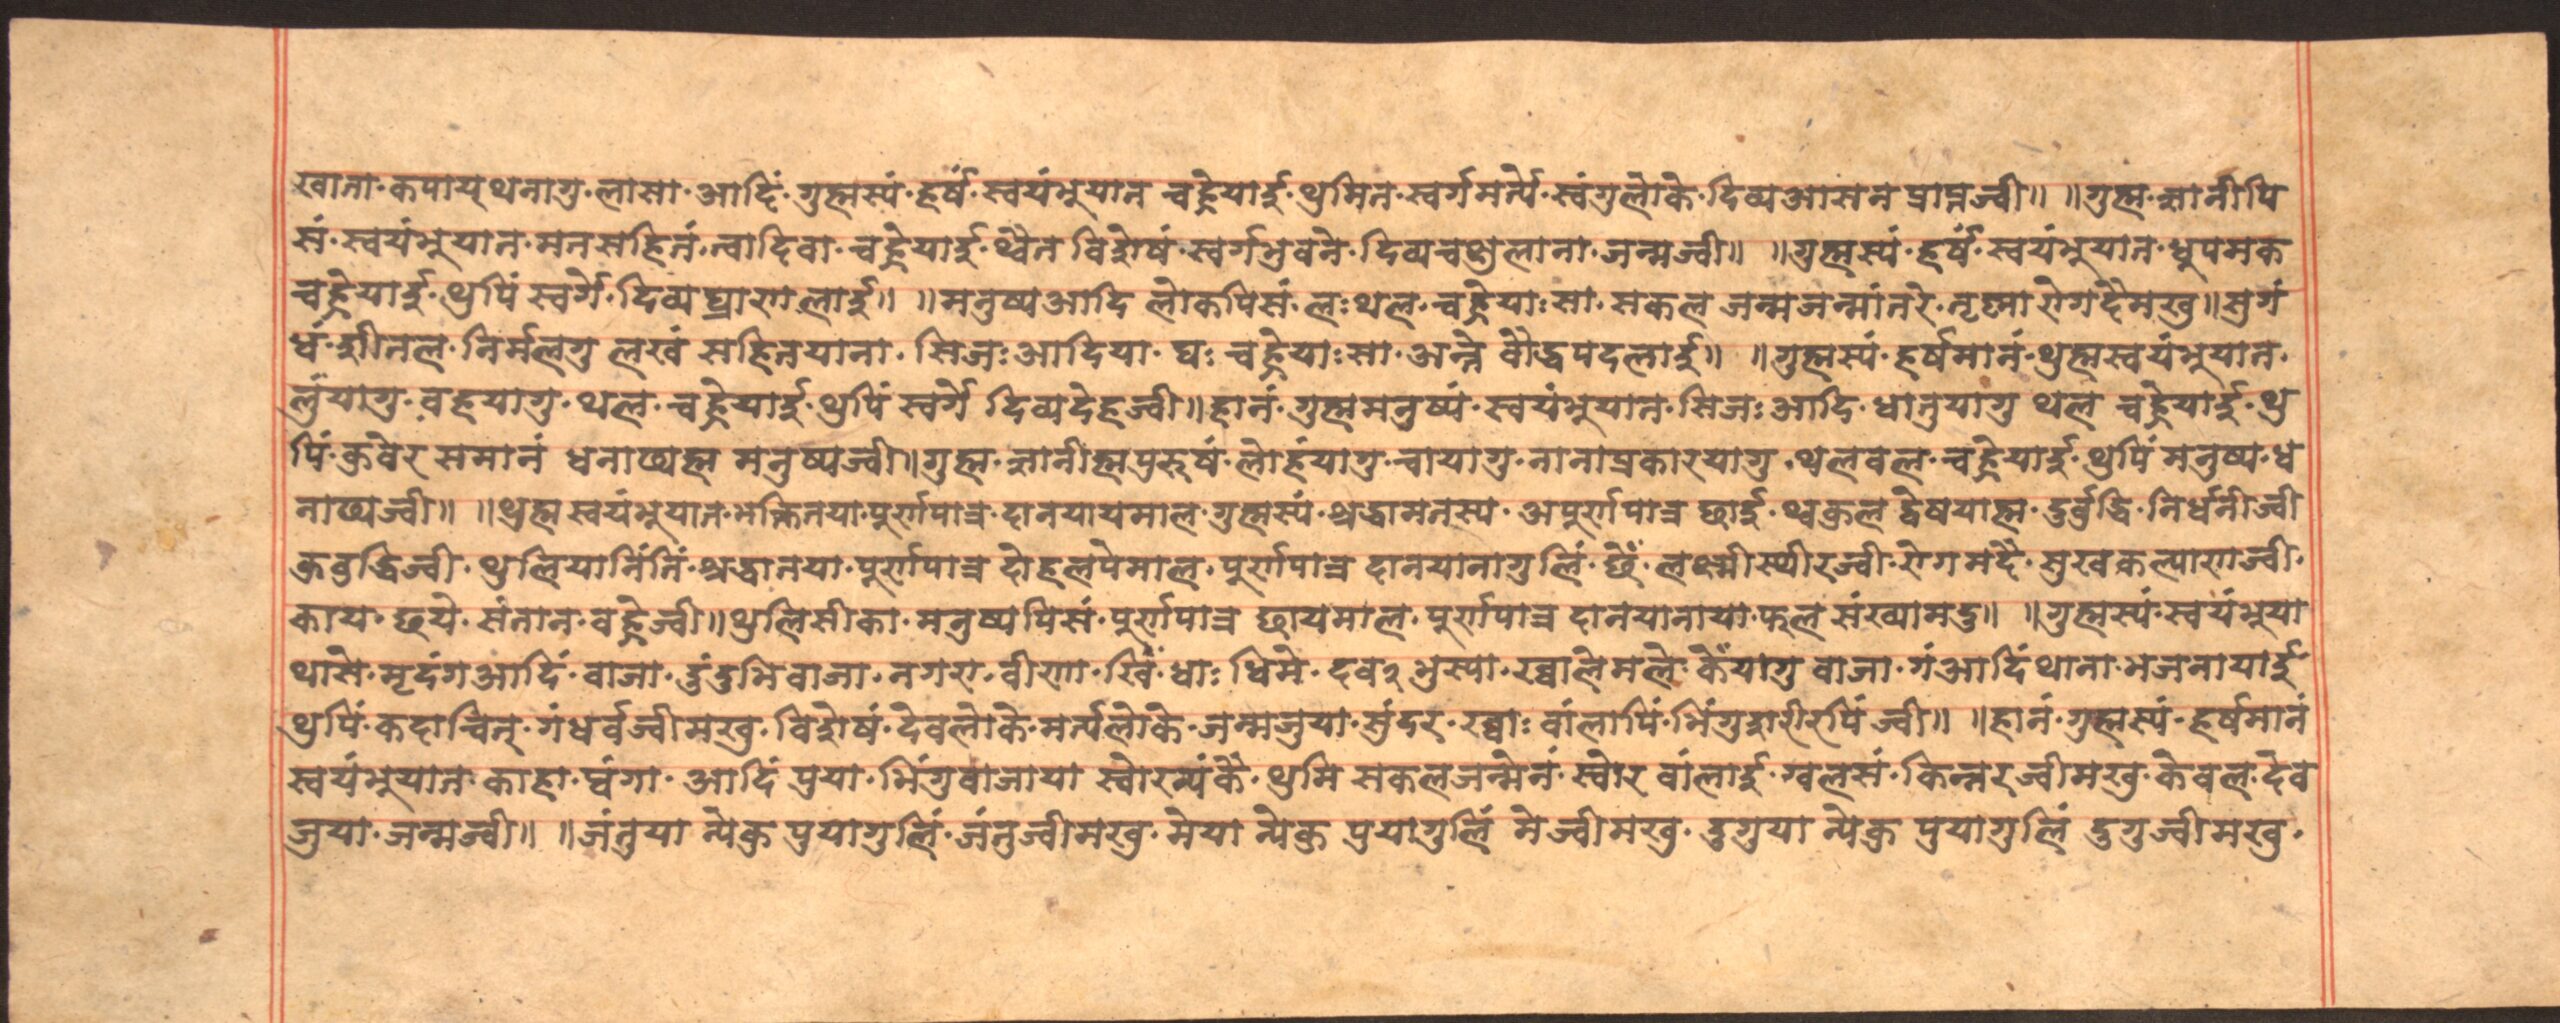 खाता·कपाय्थनागु·लासा·आदिं·गुह्मस्यं·हर्षं·स्वयंभुयात च्वह्रेयार्इ·थुमित·स्वर्गमर्त्ये·स्वंगुलोके·दिव्यआसन प्राप्तज्वी॥ ॥गुह्म·ज्ञानीपि
सं·स्वयंभुयात·मनसहितं·त्वादिवा·च्वह्रेयार्इ·थ्वैत विशेषं·स्वर्गभुवने·दिव्यचक्षुलाना·जन्मज्वी॥ ॥गुह्मस्यं·हर्षं·स्वयंभुयात·धुपमक
च्वह्रेयार्इ·थुपिं स्वर्गे·दिव्य घ्राण लार्इ॥ ॥मनुष्यआदि लोकपिसं·लःथल·च्वह्रेयाःसा·सकल जन्मजन्मांतरे·तृष्मा रोगदैमखु॥सुगं
धं·शीतल·निर्मलगु लखं सहितयाना·सिजःआदिया·घः च्वह्रेयाःसा·अन्ते बौद्धपदलार्इ॥ ॥गुह्मस्यं·हर्षमानं·थुह्मस्वयंभुयात·
लुंयागु·वहयागु·थल·च्वह्रेयार्इ·थुपिं स्वर्गे दिव्यदेहज्वी॥हानं·गुह्ममनुष्यं·स्वयंभुयात·सिजःआदि·धातुयागु थल च्वह्रेयार्इ·थु
पिं·कुवेर समानं धनाढ्यह्म मनुष्यज्वी॥गुह्म·ज्ञानीह्मपुरुषं·लोहंयागु·चायागु·नानाप्रकारयागु·थलवल·च्वह्रेयार्इ·थुपिं मनुष्य·ध
नाढ्यज्वी॥ ॥थुह्मस्वयंभुयात·भक्तितया·पुर्णपात्र·दानयायमाल·गुह्मस्यं·श्रद्धामतस्य·अपुर्णपात्र छार्इ·थ्वकुल द्वेषयाह्म·दुर्वुद्धि·निर्धनीज्वी
कुवुद्धिज्वी·थुलियानिंतिं·श्रद्धातया·पुर्णपात्र दोहलपेमाल·पुर्णपात्र दानयानागुलिं·छेँ·लक्ष्मीस्थीरज्वी·रोगमदै·सुखकल्याणज्वी·
काय·छये·संतान·वह्रेज्वी॥थुलिसीका·मनुष्यपिसं·पुर्णपात्र छायमाल·पुर्णपात्र दानयानाया·फल संख्यामदु॥ ॥गुह्मस्यं·स्वयंभुया
थासे·मृदंगआदिं·वाजा·दुंदुभिवाजा·नगरा·वीणा·खिं·धाः धिमे·दव२ भुस्या·ख्वालेमले·केंयागु वाजा·गंआदिं थाना·भजनायार्इ
थुपिं·कदाचित्·गंधर्वज्वीमखु·विशेषं·देवलोके·मर्त्यलोके·जन्मजुया·सुंदर·ख्वाः वांलापिं·भिंगुशरीरपिं ज्वी॥ ॥हानं·गुह्मस्यं·हर्षमानं
स्वयंभुयात·काहा·घंगा·आदिं पुया·भिंगुवाजाया स्वोरत्यंकै·थुमि सकलजन्मेनं·स्वोर वांलार्इ·ग्वलसं·किन्नरज्वीमखु·केवल·देव
जुया·जन्मज्वी॥ ॥जंतुया न्येकु पुयागुलिं·जंतुज्वीमखु·मेया न्येकु पुयागुलिं मेज्वीमखु·दुगुया न्येकु पुयागुलिं दुगुज्वीमखु·